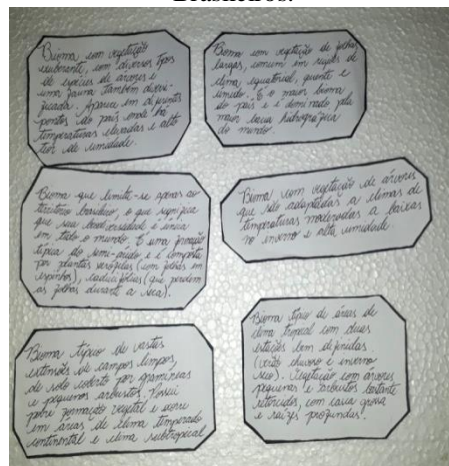 Brasileiros.
Bioma com vegetação
exuberante, com diversos tipos
de espécies de árvores e
uma fauna também diversi-
ficada. Aparece em diferentes
pontos do país onde há
temperaturas elevadas e alto
teor de umidade.
Bioma com vegetação de folhas
largas, comum em regiões de
clima equatorial, quente e
úmido. É o maior bioma
do país e é dominado pela
maior bacia hidrográfica
do mundo.
Bioma que limita-se apenas ao
território brasileiro, o que significa
que sua biodiversidade é única
em todo o mundo. É uma formação
típica do semi-árido e é composta
por plantas xerófilas (com folhas em
espinhos), caducifólias (que perdem
as folhas durante a seca).
Bioma com vegetação de árvores
que são adaptadas a climas de
temperaturas moderadas a baixas
no inverno e alta umidade.
Bioma típico de vastas
extensões de campos limpos,
de solo coberto por gramíneas
e pequenos arbustos. Possui
pobre formação vegetal e ocorre
em áreas de clima temperado
continental e clima subtropical
Bioma típico de áreas de
clima tropical com duas
estações bem definidas
(verão chuvoso e inverno
seco). Vegetação com árvores
pequenas e arbustos bastante
retorcidos, com casca grossa
e raízes profundas.